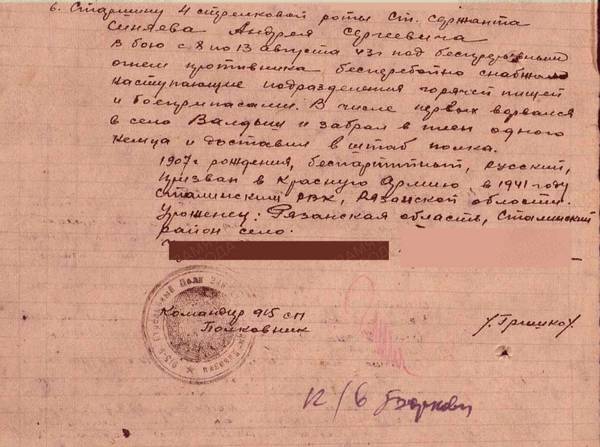 6. Старшину 4 стрелковой роты ст. сержанта
Синяева Андрея Сергеевича
В бою с 8 по 13 августа 43г под беспрерывным
огнем противника бесперебойно снабжал
наступающие подразделения горячей пищей
и боеприпасами. В числе первых ворвался
в село и забрал в плен одного
немца и доставил в штаб полка.
1907г рождения, беспартийный, русский,
призван в Красную Армию в 1941 году
Сталинским РВК, Рязанской области.
Уроженец: Рязанская область, Сталинский
район село.
Командир 915 сп
Полковник /Гришко/